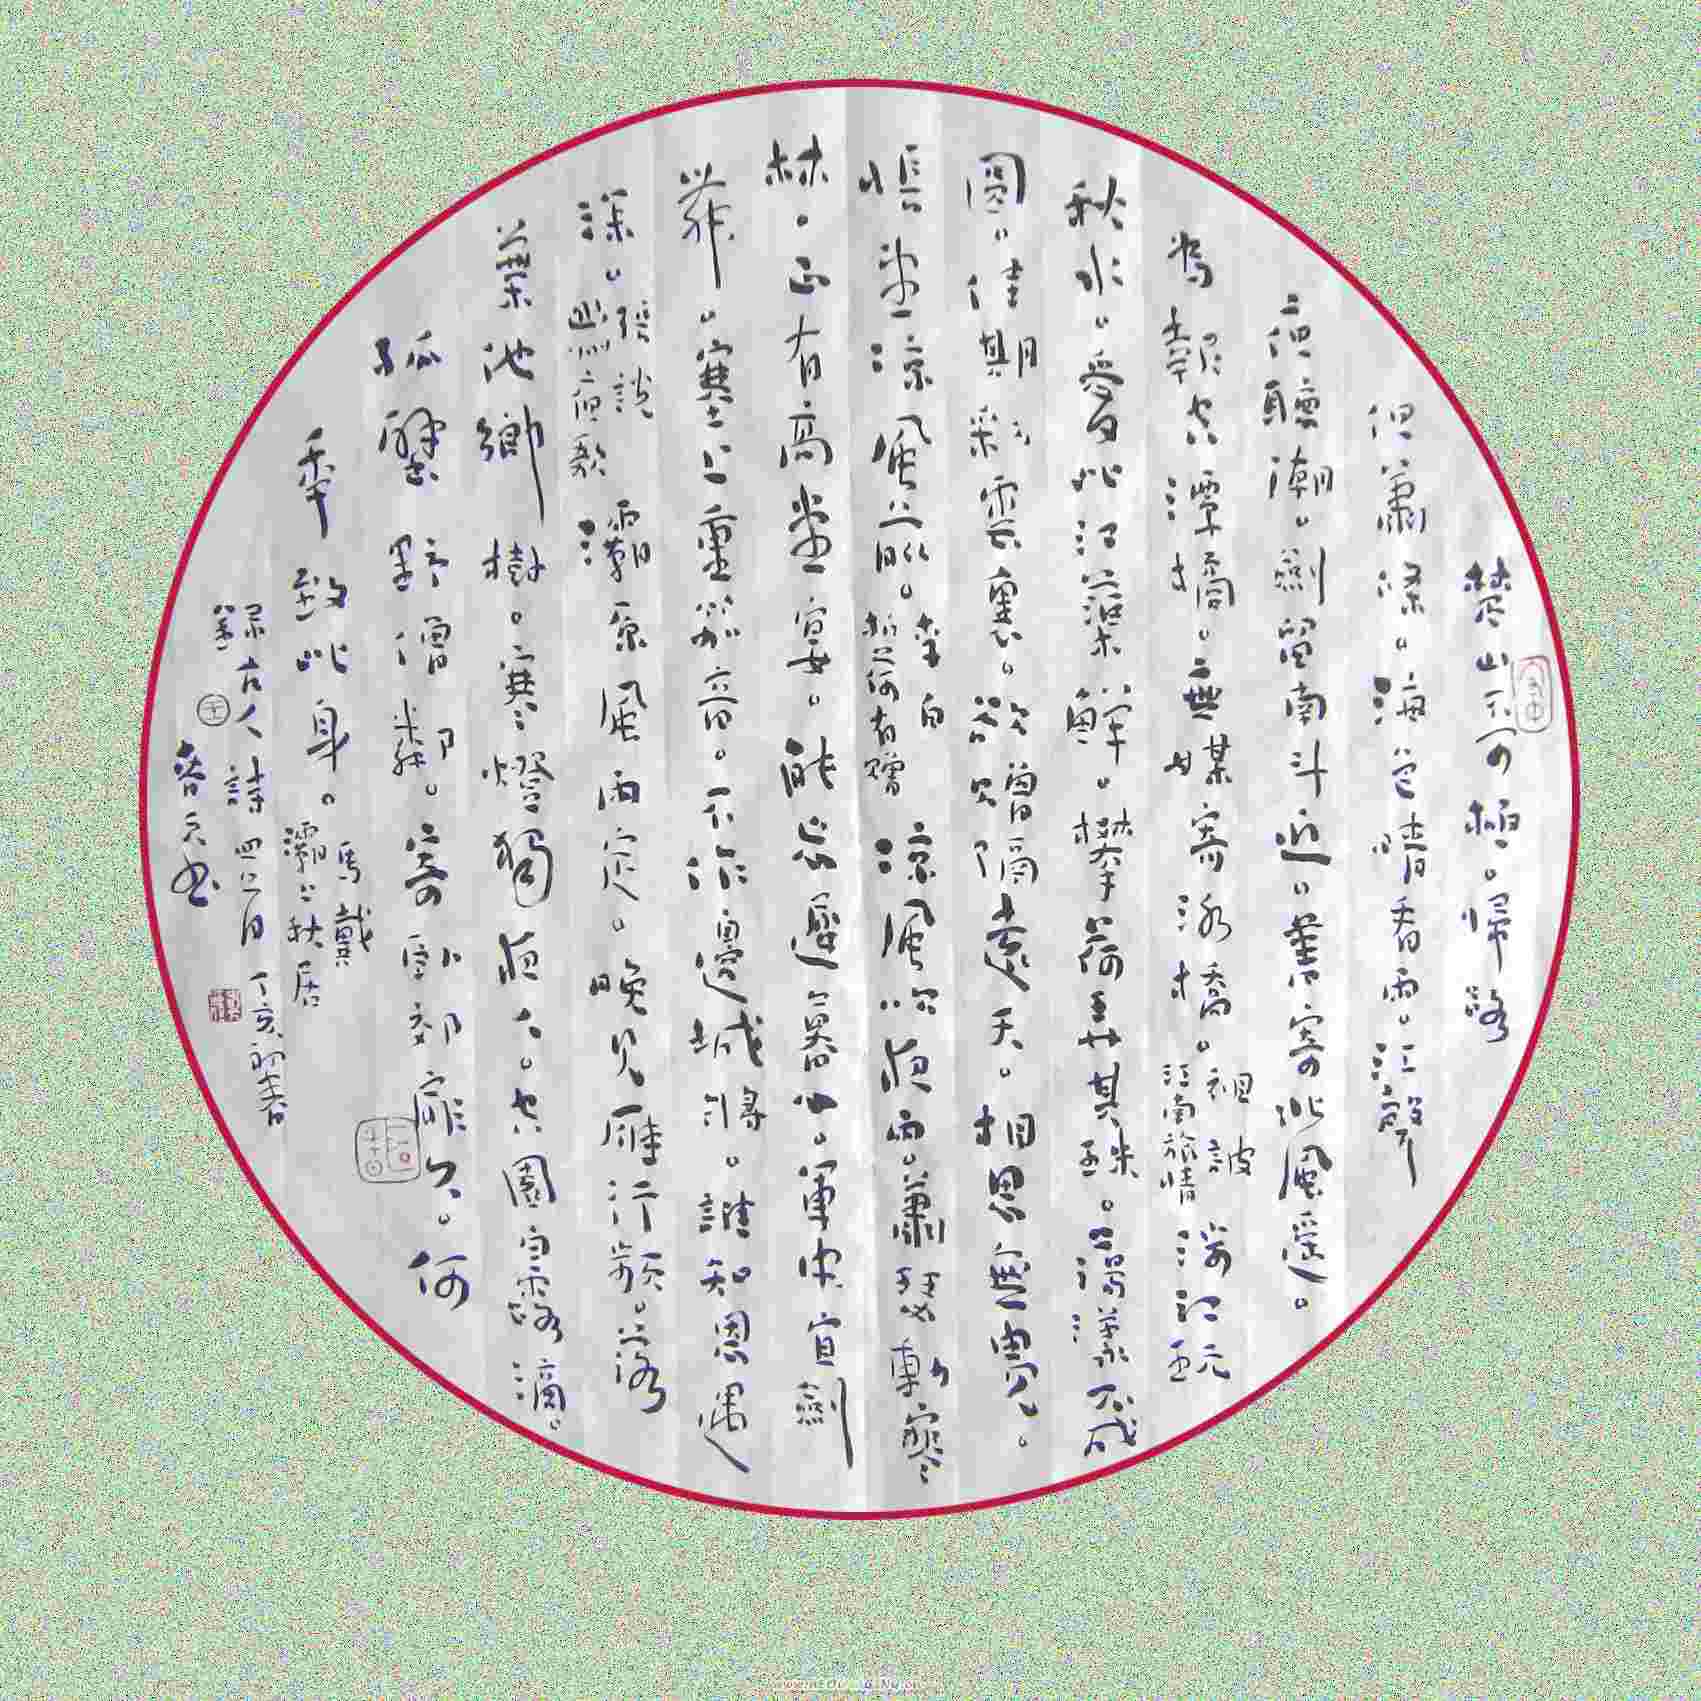 楚山不可極。歸路
但蕭條。海色晴看雨。江聲
夜聽潮。劍留南斗近。書寄北風遙。
為報空潭橘。無媒寄洛橋。祖詠
江南旅情
涉江玩
秋水。愛此紅蕖鮮。攀荷弄其珠。蕩漾不成
圓。佳期彩雲裏。欲贈隔遠天。相思無因見。
悵望涼風前。李白
折荷有贈
涼風吹夜雨。蕭瑟動寒
林。正有高堂宴。能忘遲暮心。軍中宜劍
舞。塞上重笳音。不作邊城將。誰知恩遇
深。張說
幽州夜飲
灞原風雨定。晚見雁行頻。落
葉他鄉樹。寒燈獨夜人。空園白露滴。
孤壁野僧鄰。寄臥郊扉久。何
年致此身。馬戴
灞上秋居
錄古人詩 丁亥初春